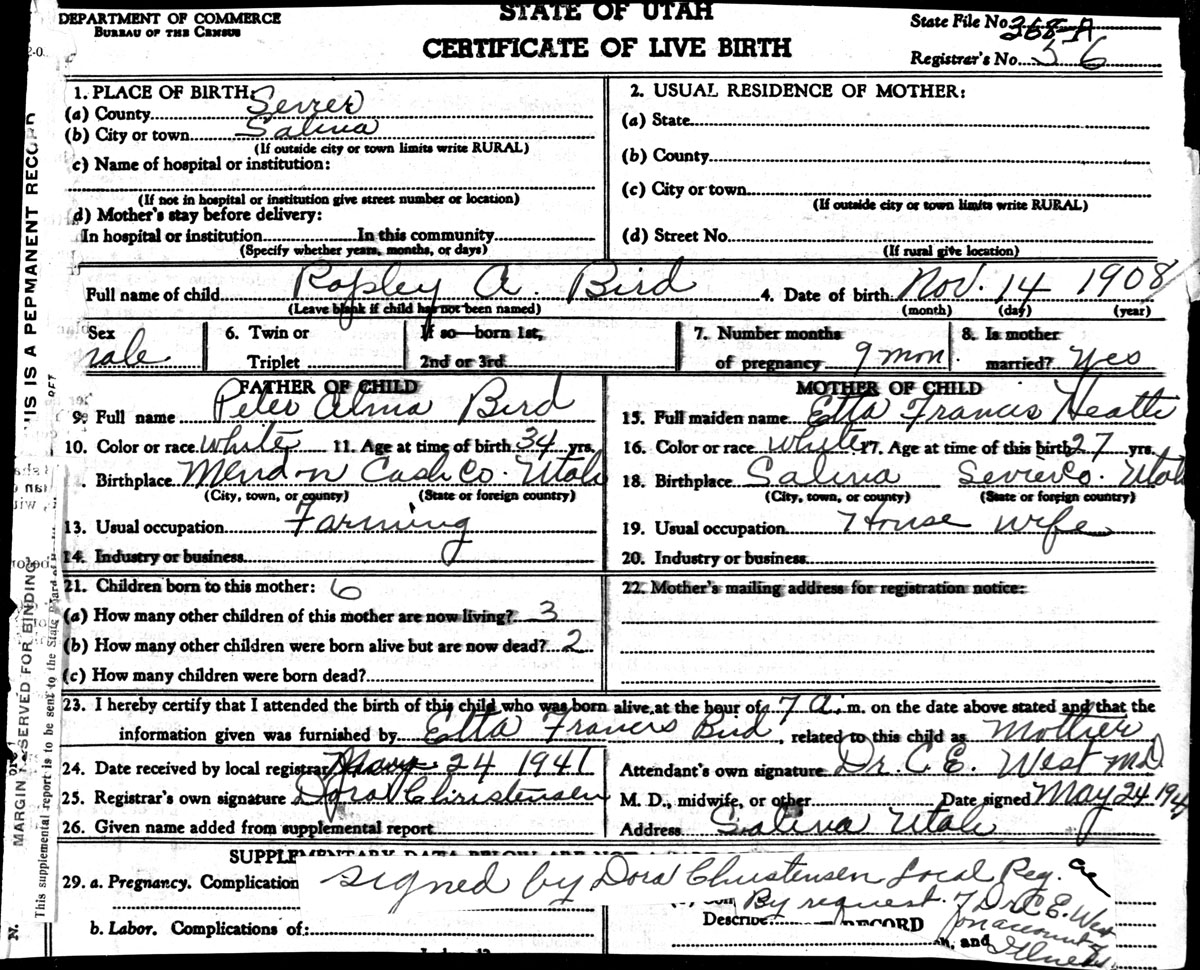 DEPARTMENT OF COMMERCE
BUREAU OF THE CENSUS
STATE OF UTAH
CERTIFICATE OF LIVE BIRTH
State File No. 268-A
Registrar's No. 56
1. PLACE OF BIRTH:
(a) County Sevier
(b) City or town Salina
(If outside city or town limits write RURAL)
c) Name of hospital or institution:
(If not in hospital or institution give street number or location)
d) Mother's stay before delivery:
In hospital or institution In this community
(Specify whether years, months, or days)
2. USUAL RESIDENCE OF MOTHER:
(a) State
(b) County
(c) City or town
(If outside city or town limits write RURAL)
(d) Street No.
(If rural give location)
Full name of child Ropley A. Bird 4. Date of birth: Nov. 14 1908
(Leave blank if child has not been named) (month) (day) (year)
Sex male
6. Twin or Triplet
If so—born 1st, 2nd or 3rd
7. Number months of pregnancy 9 mon.
8. Is mother married? yes
FATHER OF CHILD
9. Full name Peter Alma Bird
10. Color or race white 11. Age at time of birth 34 yrs.
. Birthplace Mendon Cash Co. Utah
(City, town, or county) (State or foreign country)
13. Usual occupation Farming
14. Industry or business
MOTHER OF CHILD
15. Full maiden name Etta Francis Heath
16. Color or race white 17. Age at time of this birth 27 yrs.
18. Birthplace Salina Sevier Co. Utah
(City, town, or county) (State or foreign country)
19. Usual occupation House wife
20. Industry or business
21. Children born to this mother: 6
(a) How many other children of this mother are now living? 3
(b) How many other children were born alive but are now dead? 2
(c) How many children were born dead?
22. Mother's mailing address for registration notice:
23. I hereby certify that I attended the birth of this child who was born alive at the hour of 7 a. m. on the date above stated and that the
information given was furnished by Etta Francis Bird, related to this child as Mother
24. Date received by local registrar May 24 1941
25. Registrar's own signature Dora Christensen
26. Given name added from supplemental report
Attendant's own signature Dr. C. E. West MD
M. D., midwife, or other Date signed May 24 194
Address Salina Utah
29. a. Pregnancy. Complication
signed by Dora Christensen Local Reg.
By request of Dr C. E. West
on account of
Illness
Describe
RECORD
and
b. Labor. Complications of:
'IS IS A PERMANENT RECORD
MARGIN RESERVED FOR BINDING
This supplemental report is to be sent to the State Board of
N.